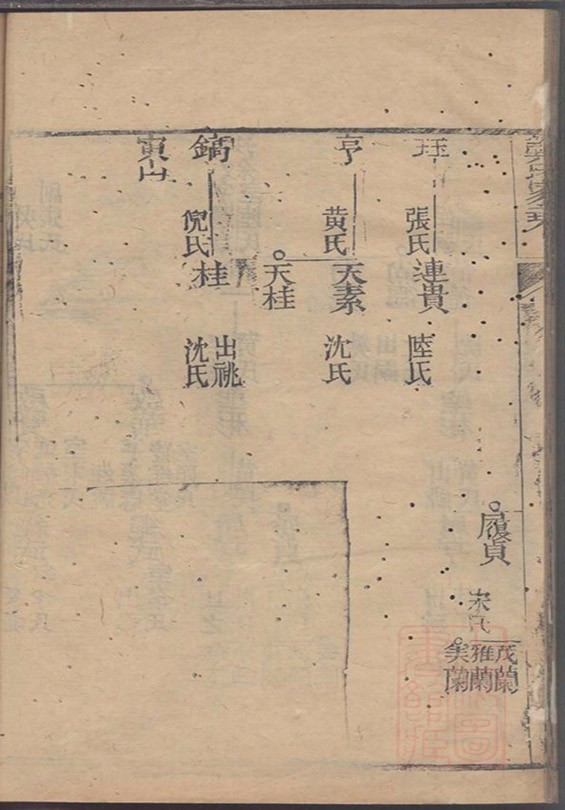 履貞
宋氏
茂蘭
雅蘭
美蘭
珏
張氏
連貴
陸氏
亨
黄氏
天素
沈氏
天桂
鎬
倪氏
桂
出祧
沈氏
東山